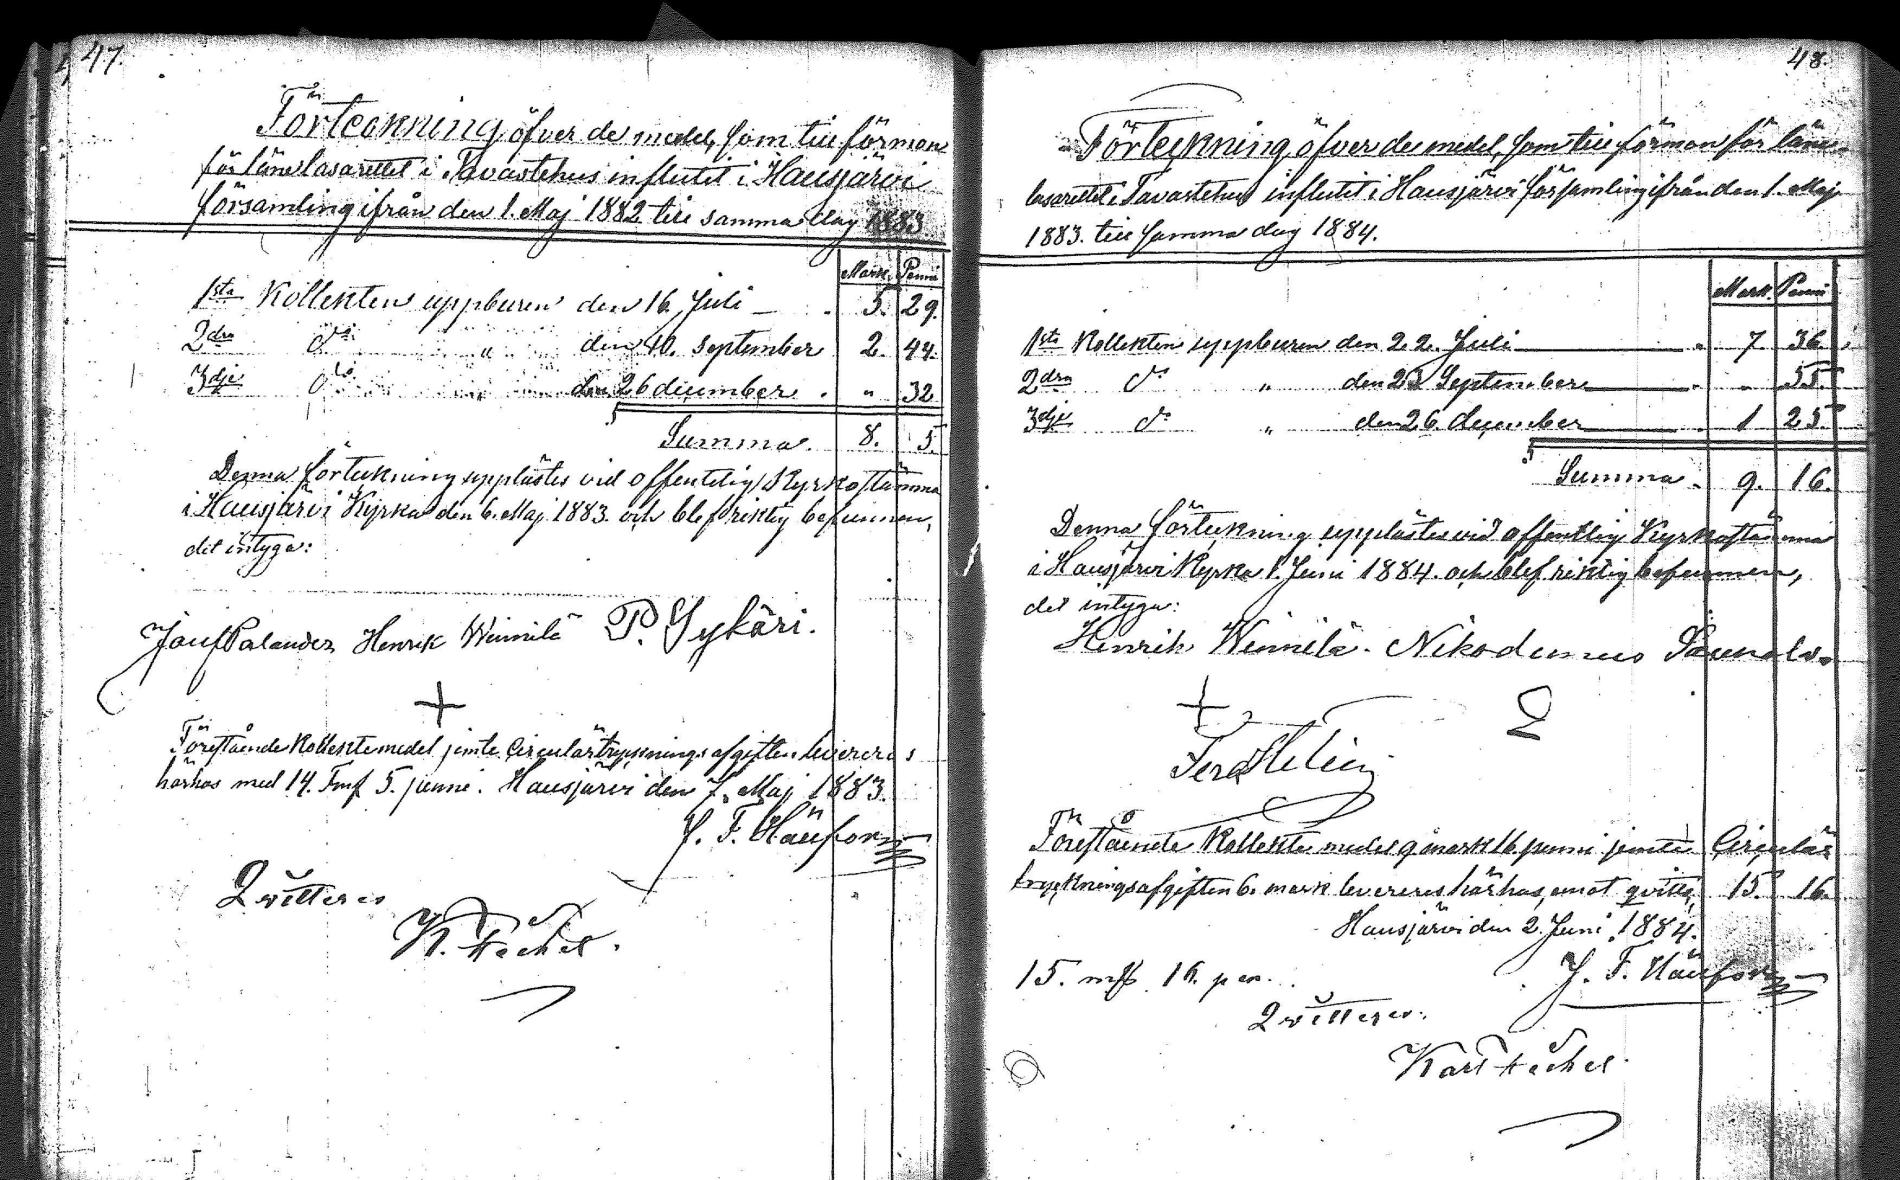 47.
Förteckning öfver de medel, som till förmon
för länelasarettet i Tavastehus influtit i Hausjärvi
församling ifrån den 1. Maj 1882 till samma dag 1883.
Mark. Penni
1sta Kollekten uppburen den 16. Juli — . 5. 29.
2dra do " den 10. September 2. 44.
3dje do den 26 december . " 32
Summa. 8. 5.
Denna förteckning upplästes vid offentelig Kyrkostämma
i Hausjärvi Kyrka den 6. Maj 1883. och blef riktig befunnen,
det intyga:
Josef Palander Henrik Weinnilä P. Sykäri.
Förestående Kollektemedel jemte Circulärtryckningsafgiften levereras
härhos med 14. Fmf 5. penni. Hausjärvi den 7. Maj 1883.
J. F.
Qvitteras
K.
48.
Förteckning öfver de medel, som till förmon för läne-
lasarettet i Tavastehus influtit i Hausjärvi församling ifrån den 1. Maj
1883. till samma dag 1884.
Mark. Penni
1sta Kollekten uppburen den 22. Juli . 7 36.
2dra do " den 23 September . " 55.
3dje do " den 26. december . 1 25.
Summa . 9. 16.
Denna förteckning upplästes vid offentlig Kyrkostämma
i Hausjärvi Kyrka 1. Juni 1884. och blef riktig befunnen,
det intyga:
Henrik Weinnilä. Nikodemus
Förestående Kollekte medel 9 mark 16. penni jemte Circulär
tryckningsafgiften 6. mark levereras härhos, emot qvitto, 15. 16.
Hausjärvi den 2. Juni. 1884.
15. mf 16. pen. J. F.
Qvitteras.
Karl